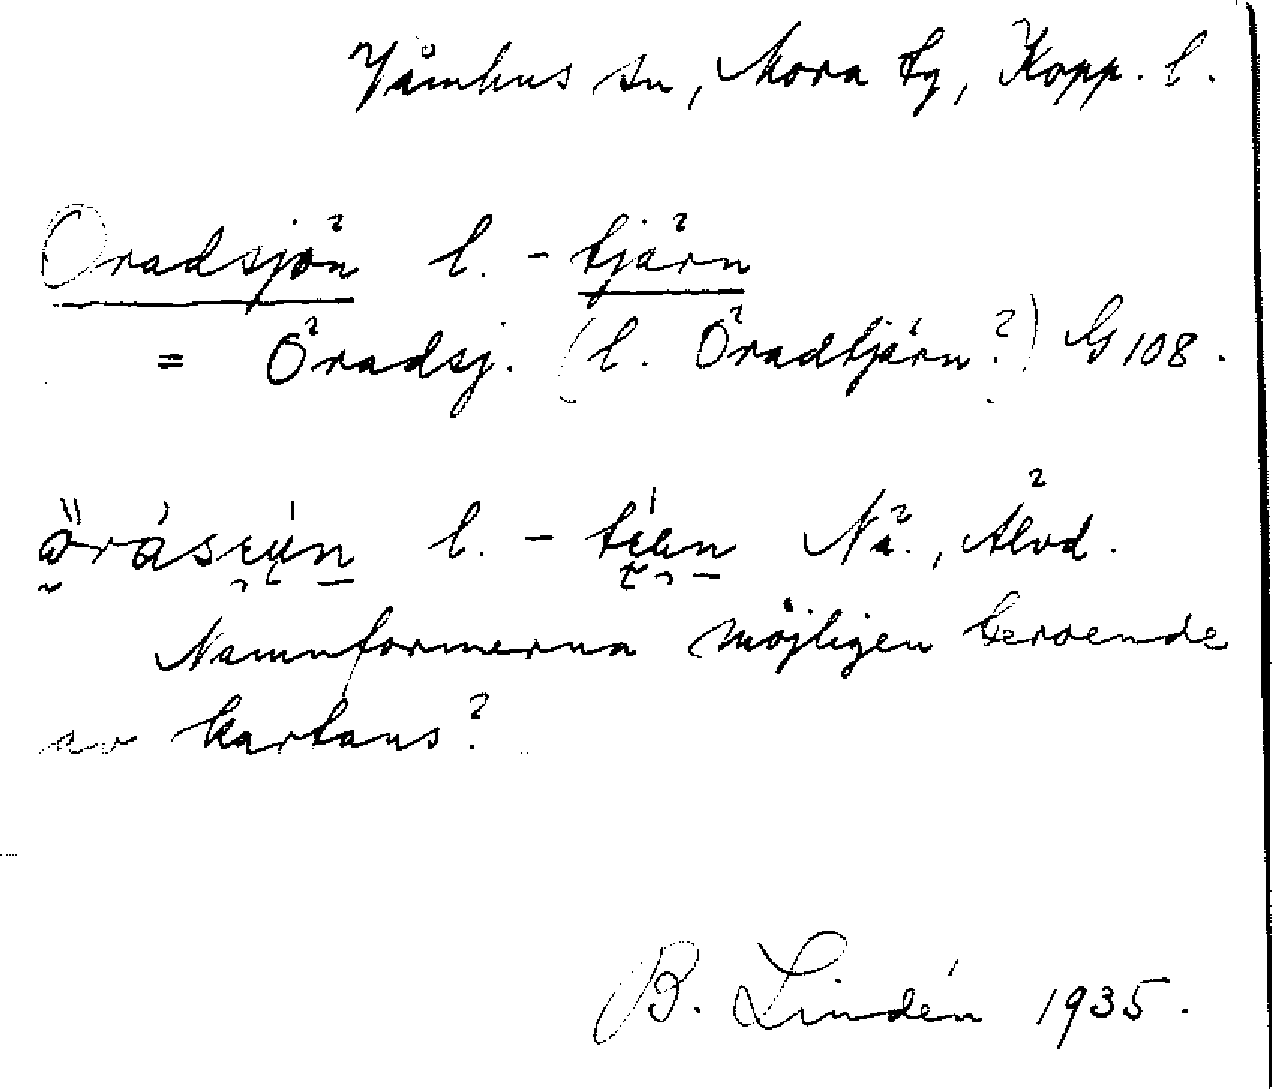 Våmhus sn, Mora tg, Kopp. l.
Oradsjön l. -tjärn
= Öradsj. (l. Öradtjärn?) G 108.
l. - Nä., Älvd.
Namnformerna möjligen beroende
av kartans?
B. Lindén 1935.